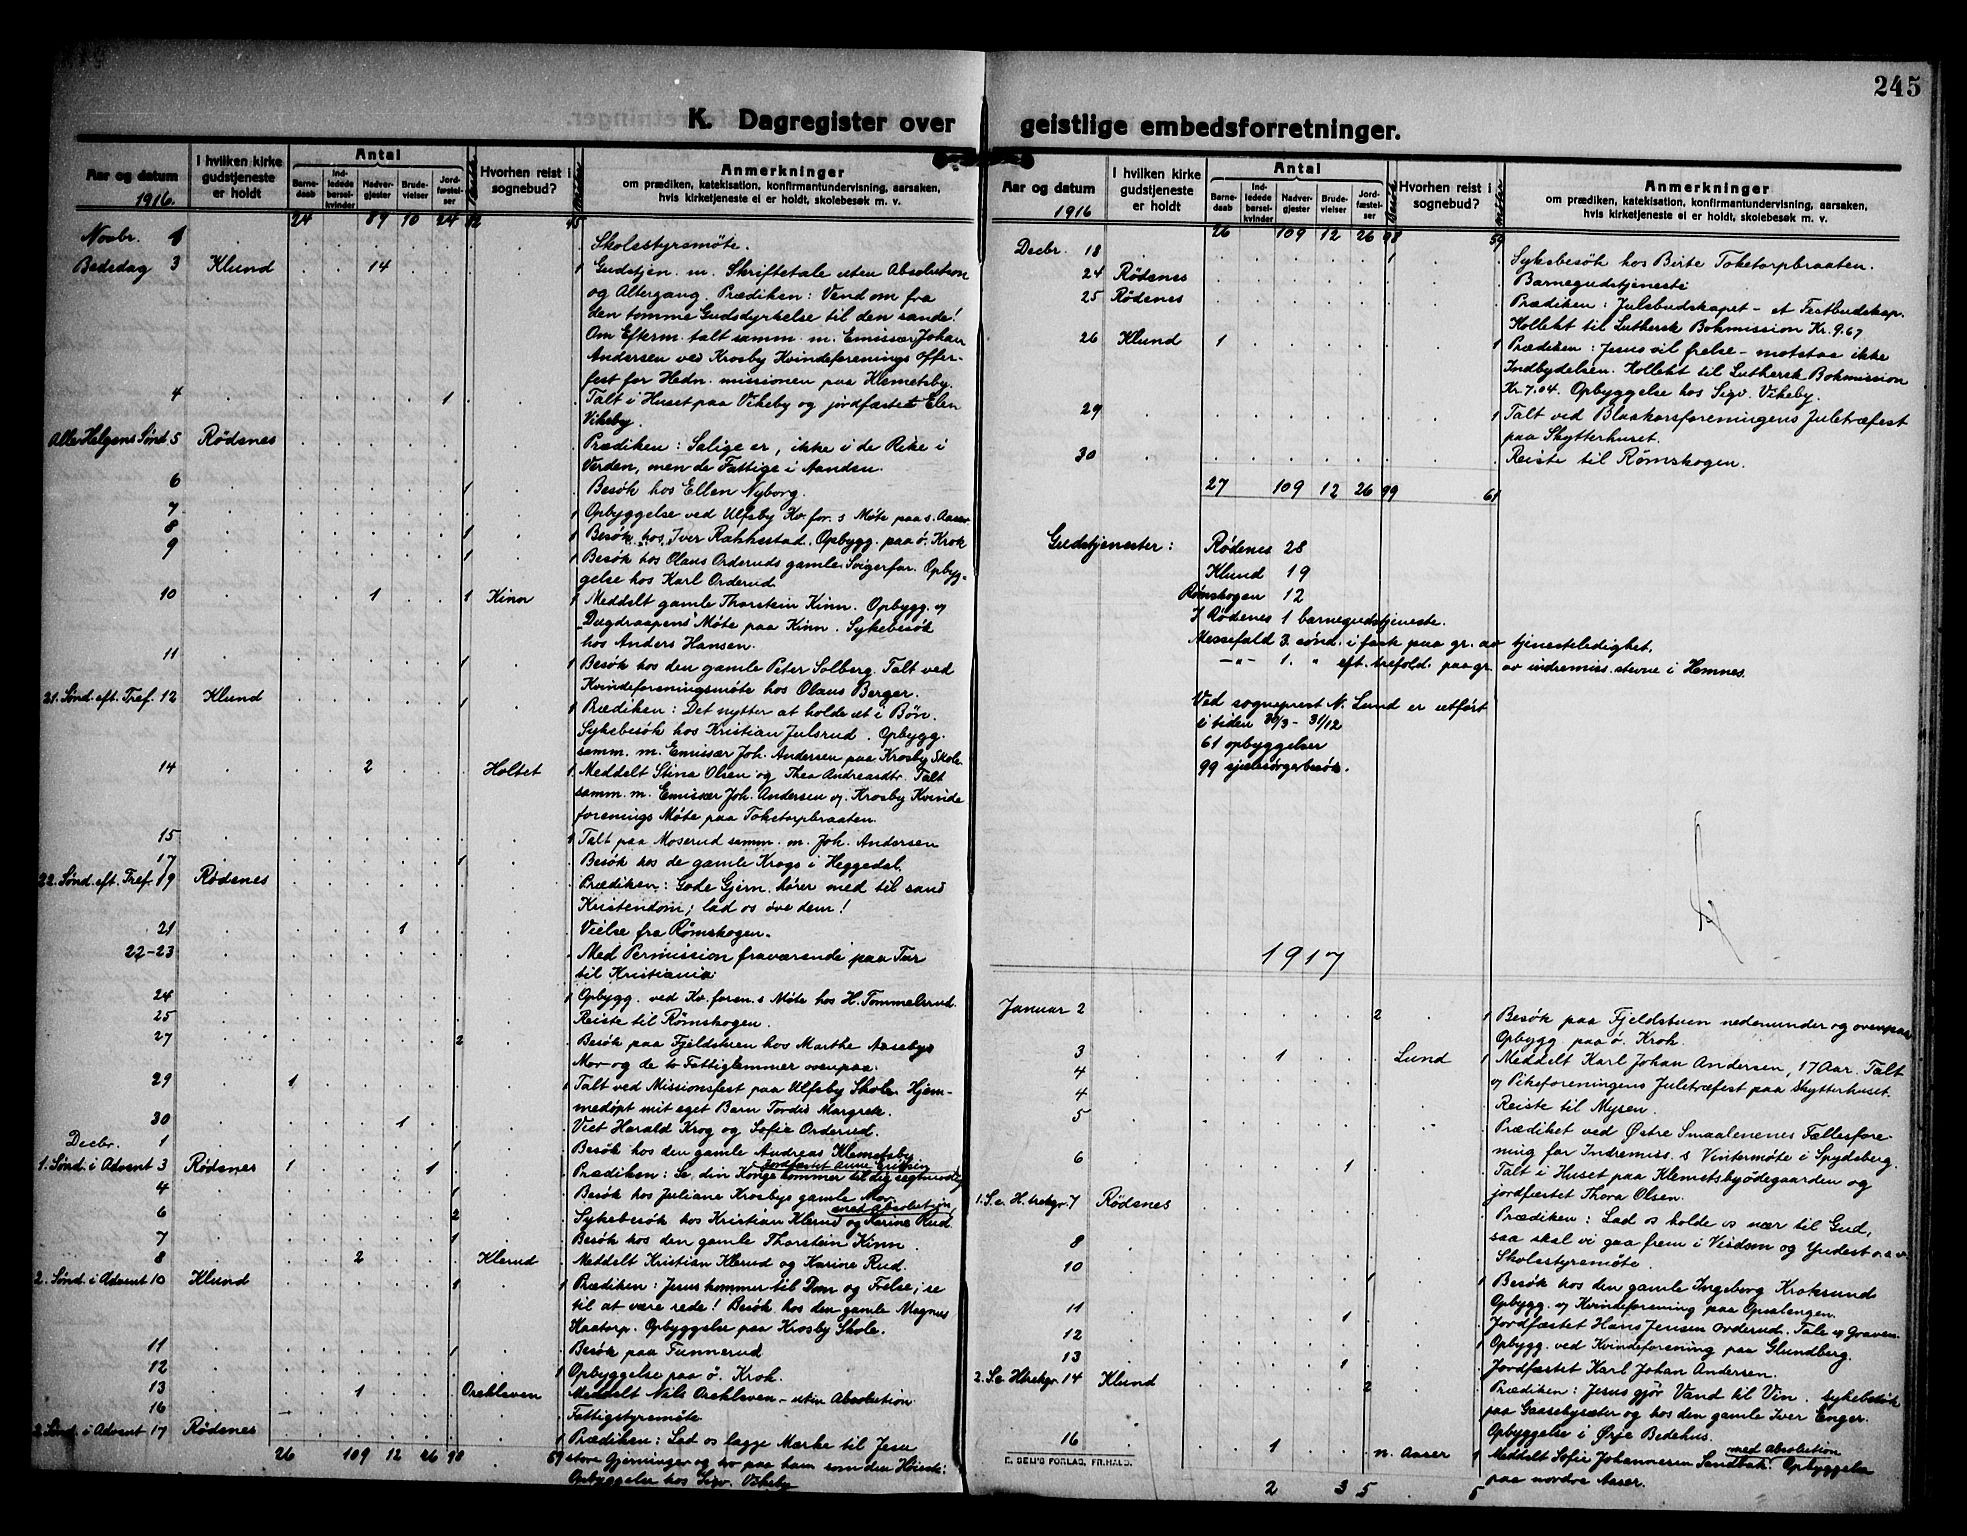 245
K. Dagregister over geistlige embedsforretninger.
Aar og datum
1916.
I hvilken kirke gudstjeneste er holdt
Antal
Barnedaab
Indledede barselkvinder
Nadvergjester
Brudevielser
Jordfæstelser
Hvorhen reist i sognebud?
Anmerkninger
om prædiken, katekisation, konfirmantundervisning, aarsaken,
hvis kirketjeneste ei er holdt, skolebesøk m. v.
24 89 10 24 82 45
Novbr. 1 Skolestyresmøte.
Bededag 3 Klund 14 1 Gudstjen. m. Skriftetale uten Absolution
og Altergang. Prædiken: Vend om fra
den tomme Gudsdyrkelse til den sande!
Om Efterm. talt samm. m. Emissær Johan
Andersen ved Krosby Kvindeforenings Offer-
fest for Hedn. missionen paa Klemetsby.
4 1 Talt i Huset paa Vikeby og jordfæstet Elen
Vikeby.
Alle Helgens Sønd 5 Rødenes Prædiken: Salige er, ikke i de Rike i
Verden, men de Fattige i Aanden.
6 1 Besøk hos Ellen Nyborg.
7 1 Opbyggelse ved Ulfsby Kv. for. s Møte paa s. Aaser
8 1 1 Besøk hos Iver Rakkestad. Opbygg. paa ø. Krok
9 1 1 Besøk hos Olaus Orderuds gamle Svigerfar. Opbyg-
gelse hos Karl Orderud.
10 1 1 Kinn 1 Meddelt gamle Thorstein Kinn. Opbygg. v
"Dugdraapens" Møte paa Kinn. Sykebesøk
hos Anders Hansen.
11 1 1 Besøk hos den gamle Peter Solberg. Talt ved
Kvindeforeningsmøte hos Olaus Berger.
21. Sønd. eft. Tref. 12 Klund 1 1 Prædiken: Det nytter at holde ut i Bøn.
Sykebesøk hos Kristian Julsrud. Opbygg.
samm. m. Emissær Joh. Andersen paa Krosby Skole.
14 2 Holtet 1 Meddelt Stina Olsen og Thea Andreasdtr. Talt
samm. m. Emissær Joh. Andersen v Krosby Kvinde
forenings Møte paa Toketorpbraaten.
15 1 Talt paa Moserud samm. m. Joh. Andersen
17 1 Besøk hos de gamle Krogs i Heggedal.
22. Sønd. eft. Tref. 19 Rødenes Prædiken: Gode Gjern. hører med til sand
Kristendom; lad os øve dem!
21 1 Vielse fra Rømskogen.
22-23 Med Permission fraværende paa Tur
til Kristiania.
24 1 Opbygg. ved Kv. foren. s Møte hos H. Tommelsrud.
25 Reiste til Rømskogen.
27 2 Besøk paa Fjeldstuen hos Marthe Aasebys
Mor og de to Fattiglemmer ovenpaa.
29 1 1 Talt ved Missionsfest paa Ulfsby Skole. Hjem-
medøpt mit eget Barn Tordis Margrete.
30 1 Viet Harald Krog og Sofie Orderud.
Decbr. 1 1 Besøk hos den gamle Andreas Klemetsby.
1. Sønd. i Advent 3 Rødenes 1 1 Prædiken: Se, din Konge kommer til dig sagtmodig
Jordfæstet Anne
4 1 Besøk hos Juliane Krosbys gamle Mor.
6 2 Sykebesøk hos Kristian Klerud og Karine Rud
med Absolution
7 1 Besøk hos den gamle Thorstein Kinn.
8 2 Klerud Meddelt Kristian Klerud og Karine Rud.
2. Sønd. i Advent 10 Klund 1 1 Prædiken: Jesus kommer til Dom og Frelse; se
til at være rede! Besøk hos den gamle Magnus
Kaatorp. Opbyggelse paa Krosby Skole.
11 1 Besøk paa Funnerud
12 1 Opbyggelse paa ø. Krok.
13 1 Meddelt Nils - uten Absolution
16 Fattigstyremøte
3. Sønd. i Advent 17 Rødenes 1 Prædiken: Lad os lægge Merke til Jesu
store Gjerninger og tro paa ham som den
Opbyggelse hos Sigv. Vikeby
26 109 12 26 98 59
Aar og datum
1916
I hvilken kirke gudstjeneste er holdt
Antal
Barnedaab
Indledede barselkvinder
Nadvergjester
Brudevielser
Jordfæstelser
Hvorhen reist i sognebud?
Anmerkninger
om prædiken, katekisation, konfirmantundervisning, aarsaken,
hvis kirketjeneste ei er holdt, skolebesøk m. v.
26 109 12 26 98 59
Decbr. 18 1 Sykebesøk hos Birte Toketorpbraaten.
24 Rødenes Barnegudstjeneste
25 Rødenes Prædiken: Julebudskapet - et Festbudskap.
Kollekt til Luthersk Bokmission Kr. 9.67
26 Klund 1 1 Prædiken: Jesus vil frelse - motstaa ikke
Indbydelsen. Kollekt til Luthersk Bokmission
Kr. 7.04. Opbyggelse hos Sigv. Vikeby.
29 1 Talt ved Blaakorsforeningens Juletræfest
paa Skytterhuset.
30 Reiste til Rømskogen.
27 109 12 26 99 61
Gudstjenester: Rødenes 28
Klund 19
Rømskogen 12
I Rødenes 1 barnegudstjeneste.
Messefald 3. sønd. i faste paa gr. av tjenesteledighet.
-"- 1. " eft. trefold. paa gr. av indremiss. stevne i Hemnes.
Ved sogneprest N. Lund er utført
i tiden 30/3 - 31/12
61 opbyggelser
99 sjælesørgerbesøk.
1917
Januar 2 2 1 Besøk paa Fjeldstuen nedenunder og ovenpaa
Opbygg paa ø. Krok.
3 1 Lund 1 Meddelt Karl Johan Andersen, 17 Aar. Talt
4 v Pikeforeningens Juletræfest paa Skytterhuset.
4 Reiste til Mysen.
5 Prædiket ved Østre Smaalenenes Fællesfore-
ning for Indremiss. s Vintermøte i Spydeberg.
6 1 Talt i Huset paa Klemetsbyødegaarden og
jordfæstet Thora Olsen.
1. S. e. H. trekgr. 7 Rødenes Prædiken: Lad os holde os nær til Gud,
saa skal vi gaa frem i Visdom og Yndest o. s. v.
8 Skolestyremøte.
10 1 1 Besøk hos den gamle Ingeborg Kroksund
Opbygg. v Kvindeforening paa Opsalengen.
11 1 Jordfæstet Hans Jensen Orderud. Tale v Graven.
12 1 Opbygg. ved Kvindeforening paa Glundberg.
13 1 Jordfæstet Karl Johan Andersen.
2. S. e. H. trekgr. 14 Klund 2 Prædiken: Jesus gjør Vand til Vin. Sykebesøk
paa Gaasebysæter og hos den gamle Iver Enger.
Opbyggelse i Ørje Bedehus.
16 1 n. Aaser 1 Meddelt Sofie Johannesen Sandbæk. Opbyggelse
med Absolution
paa nordre Aaser.
2 3 5 5
E. SEM'S FORLAG, FR.HALD.